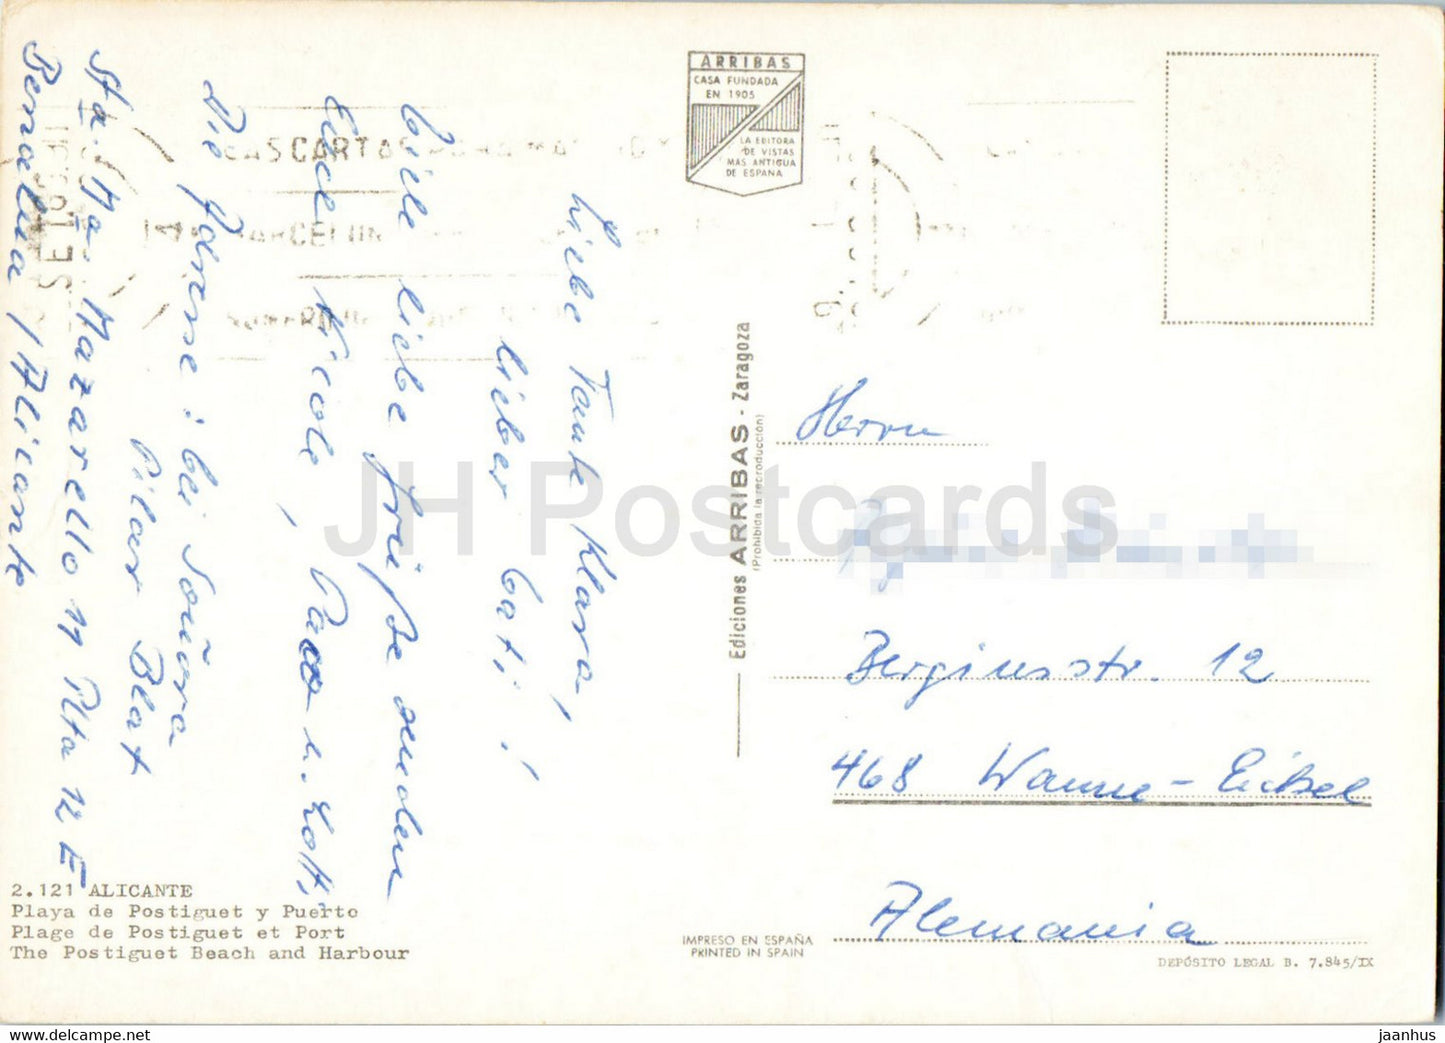 ARRIBAS
CASA FUNDADA
EN 1905
LA EDITORA
DE VISTAS
MAS ANTIGUA
DE ESPAÑA
Liebe Tante Klara,
lieber Cati!
Viele liebe Grüße senden
Euch Nicole, u. Lott,
Die Adresse: bei Señora
Pilar Blat
Sta. Ma. Mazarello 11 Pta 12 E
Benalua / Alicante
2.121 ALICANTE
Playa de Postiguet y Puerto
Plage de Postiguet et Port
The Postiguet Beach and Harbour
Ediciones ARRIBAS - Zaragoza
(Prohibida la reproducción)
Herrn
Bergiusstr. 12
468 Wanne-Eickel
Alemania
IMPRESO EN ESPAÑA
PRINTED IN SPAIN
DEPÓSITO LEGAL B. 7.845/IX
JH Postcards
https://www.ebay.com/str/jhpostcards
jaanhus